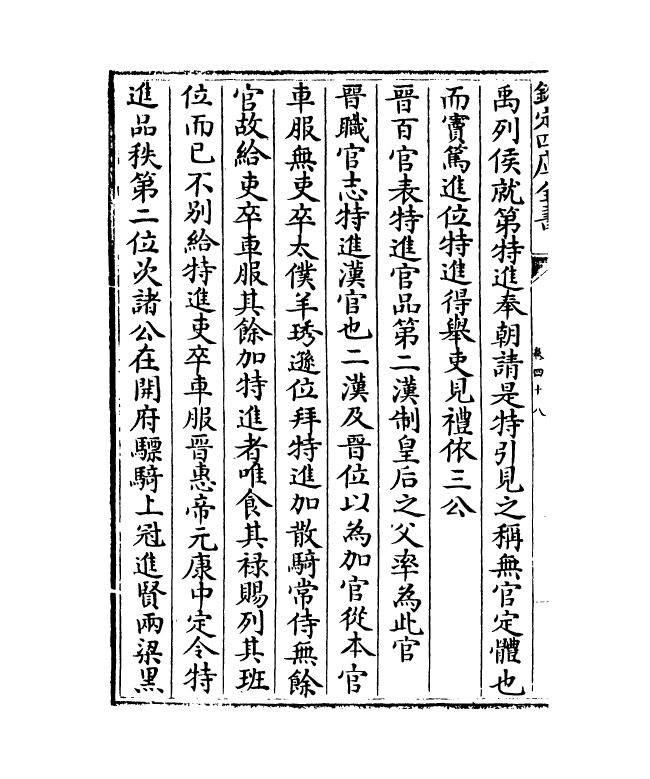 欽定四庫全書
卷四十八
禹列侯就第特進奉朝請是特引見之稱無官定體也
而實篤進位特進得舉吏見禮依三公
晉百官表特進官品第二漢制皇后之父率為此官
晉職官志特進漢官也二漢及晉位以為加官從本官
車服無吏卒太僕羊琇遜位拜特進加散騎常侍無餘
官故給吏卒車服其餘加特進者唯食其禄賜列其班
位而已不別給特進吏卒車服晉惠帝元康中定令特
進品秩第二位次諸公在開府驃騎上冠進賢兩梁黑